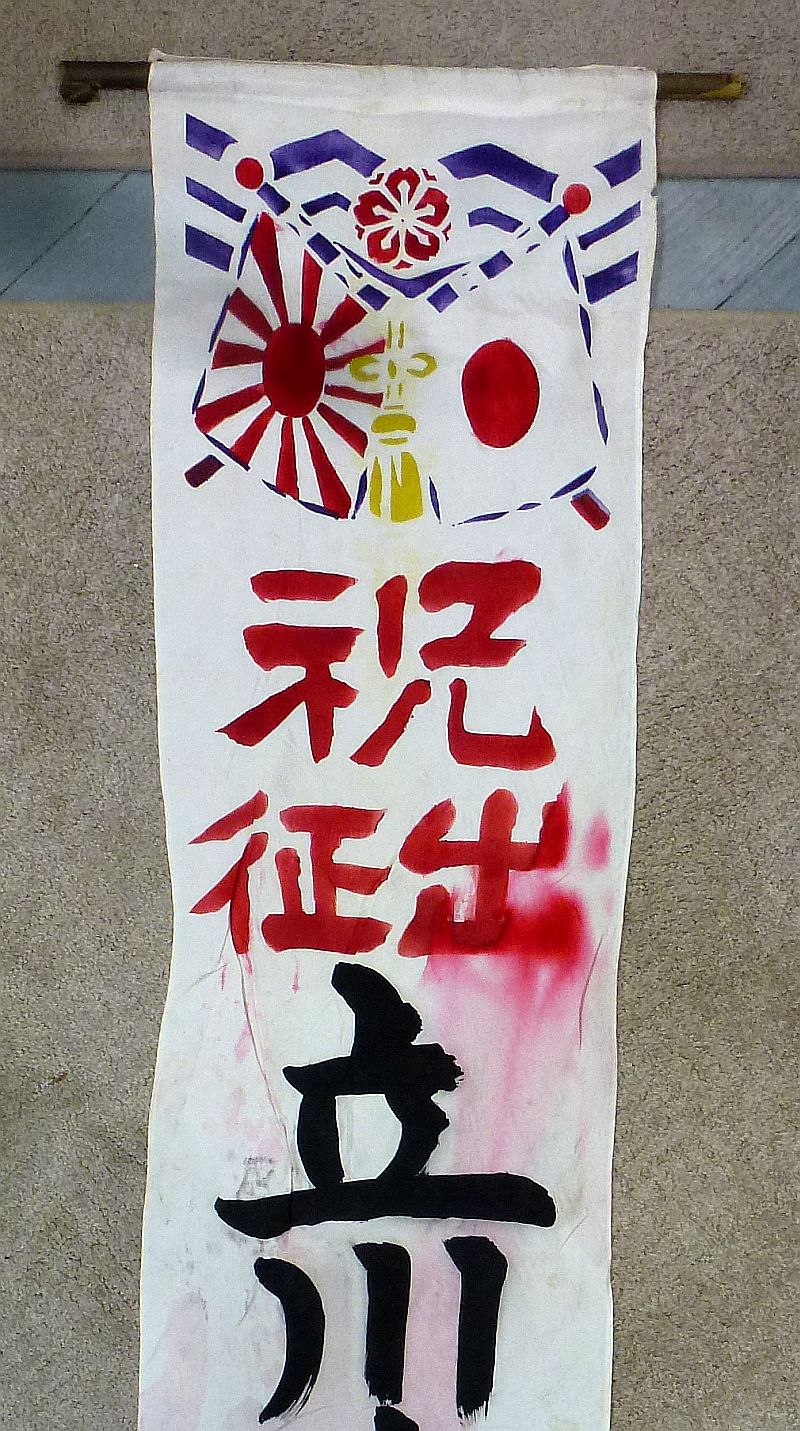 祝
出征
立川